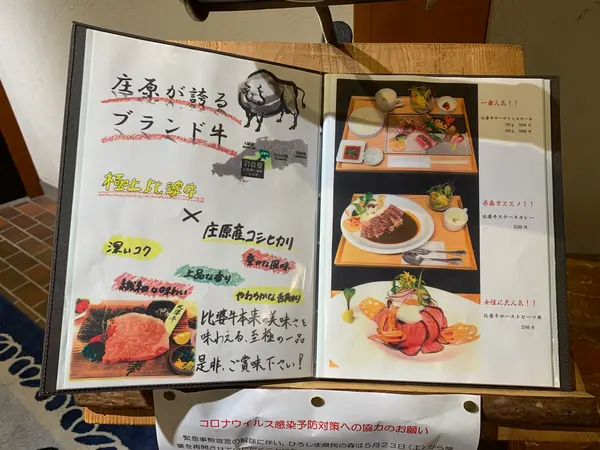 庄原が誇る
ブランド牛
極上比婆牛
×
庄原産コシヒカリ
深いコク
豊かな風味
上品な香り
繊細な味わい
やわらかな舌触り
比婆牛本来の美味さを
味わえる、至極の一品
是非、ご賞味下さい!
一番人気!!
比婆牛サーロインステーキ
女性に大人気!!
比婆牛ステーキカレー
比婆牛ローストビーフ丼
コロナウイルス感染予防対策への協力のお願い
緊急事態宣言の解除に伴い、ひろしま県民の森は5月23日(土)から営
業を再開させて